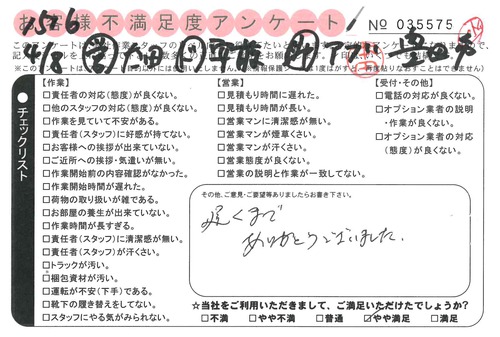 お客様不満足度アンケート
No 035575
1586
4/8
チェックリスト
【作業】
□責任者の対応(態度)が良くない。
□他のスタッフの対応(態度)が良くない。
□作業を見ていて不安がある。
□責任者(スタッフ)に好感が持てない。
□お客様への挨拶が出来ていない。
□ご近所への挨拶・気遣いが無い。
□作業開始前の内容確認がなかった。
□作業開始時間が遅れた。
□荷物の取り扱いが雑である。
□お部屋の養生が出来ていない。
□作業時間が長すぎる。
□責任者(スタッフ)に清潔感が無い。
□責任者(スタッフ)が汗くさい。
□トラックが汚い。
□梱包資材が汚い。
□運転が不安(下手)である。
□靴下の履き替えをしてない。
□スタッフにやる気がみられない。
【営業】
□見積もり時間に遅れた。
□見積もり時間が長い。
□営業マンに清潔感が無い。
□営業マンが煙草くさい。
□営業マンが汗くさい。
□営業態度が良くない。
□営業の説明と作業が一致してない。
【受付・その他】
□電話の対応が良くない。
□オプション業者の説明
・作業が良くない。
□オプション業者の対応
(態度)が良くない。
その他、ご意見・ご要望等ありましたらお書き下さい。
遅くまで
ありがとうございました。
☆当社をご利用いただきまして、ご満足いただけたでしょうか?
□不満 □やや不満 □普通 ☑やや満足 □満足